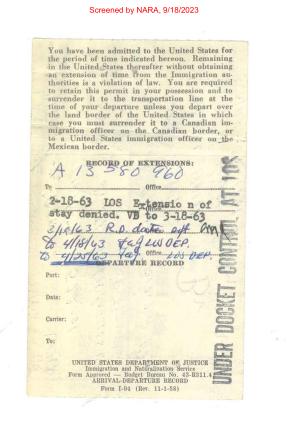 Screened by NARA, 9/18/2023
You have been admitted to the United States for
the period of time indicated hereon. Remaining
in the United States thereafter without obtaining
an extension of time from the Immigration au-
thorities is a violation of law. You are required
to retain this permit in your possession and to
surrender it to the transportation line at the
time of your departure unless you depart over
the land border of the United States in which
case you must surrender it to a Canadian im-
migration officer on the Canadian border, or
to a United States immigration officer on the
Mexican border.
RECORD OF EXTENSIONS:
A 13 580 960
To Office
2-18-63 LOS Extensio n of
stay denied. VD to 3-18-63
R.D. date
to 4/18/63 LOS DEP.
to 4/25/63 Office LOS DEP.
DEPARTURE RECORD
Port:
Date:
Carrier:
To:
UNDER DOCKET CONTROL AT LOS
UNITED STATES DEPARTMENT OF JUSTICE
Immigration and Naturalization Service
Form Approved — Budget Bureau No. 43-R311.4
ARRIVAL-DEPARTURE RECORD
Form I-94 (Rev. 11-1-58)